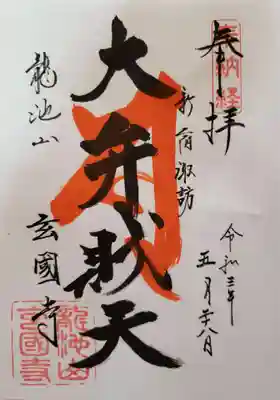 奉拝
奉納経
新宿諏訪
令和三年
五月廿八日
大弁財天
龍池山
玄國寺
龍池山
玄國寺